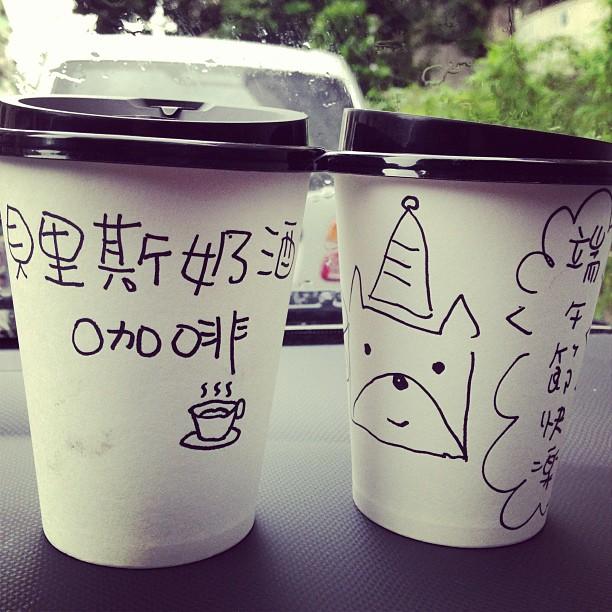 貝里斯奶酒
咖啡
端午節快樂